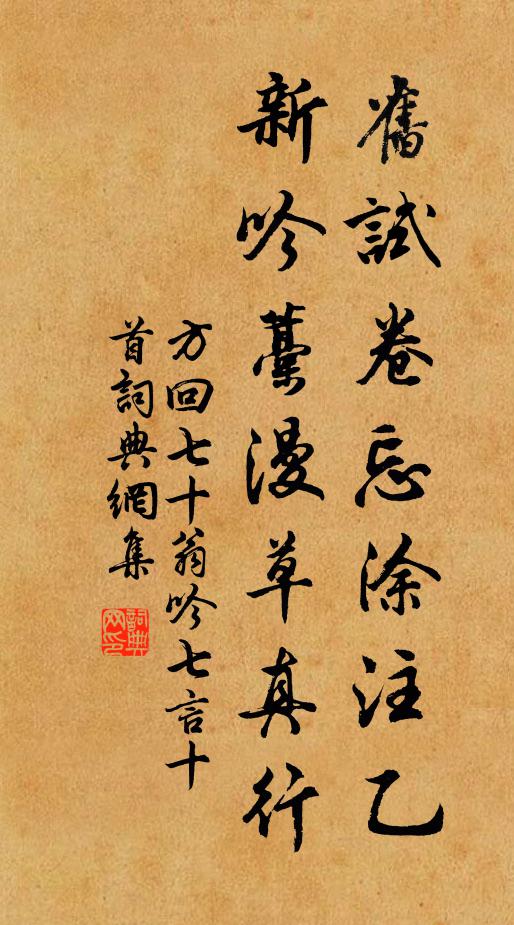 舊試卷忘涂注乙
新吟藁漫草真行
方回七十翁吟七言十
首詞典網集
詞典网印